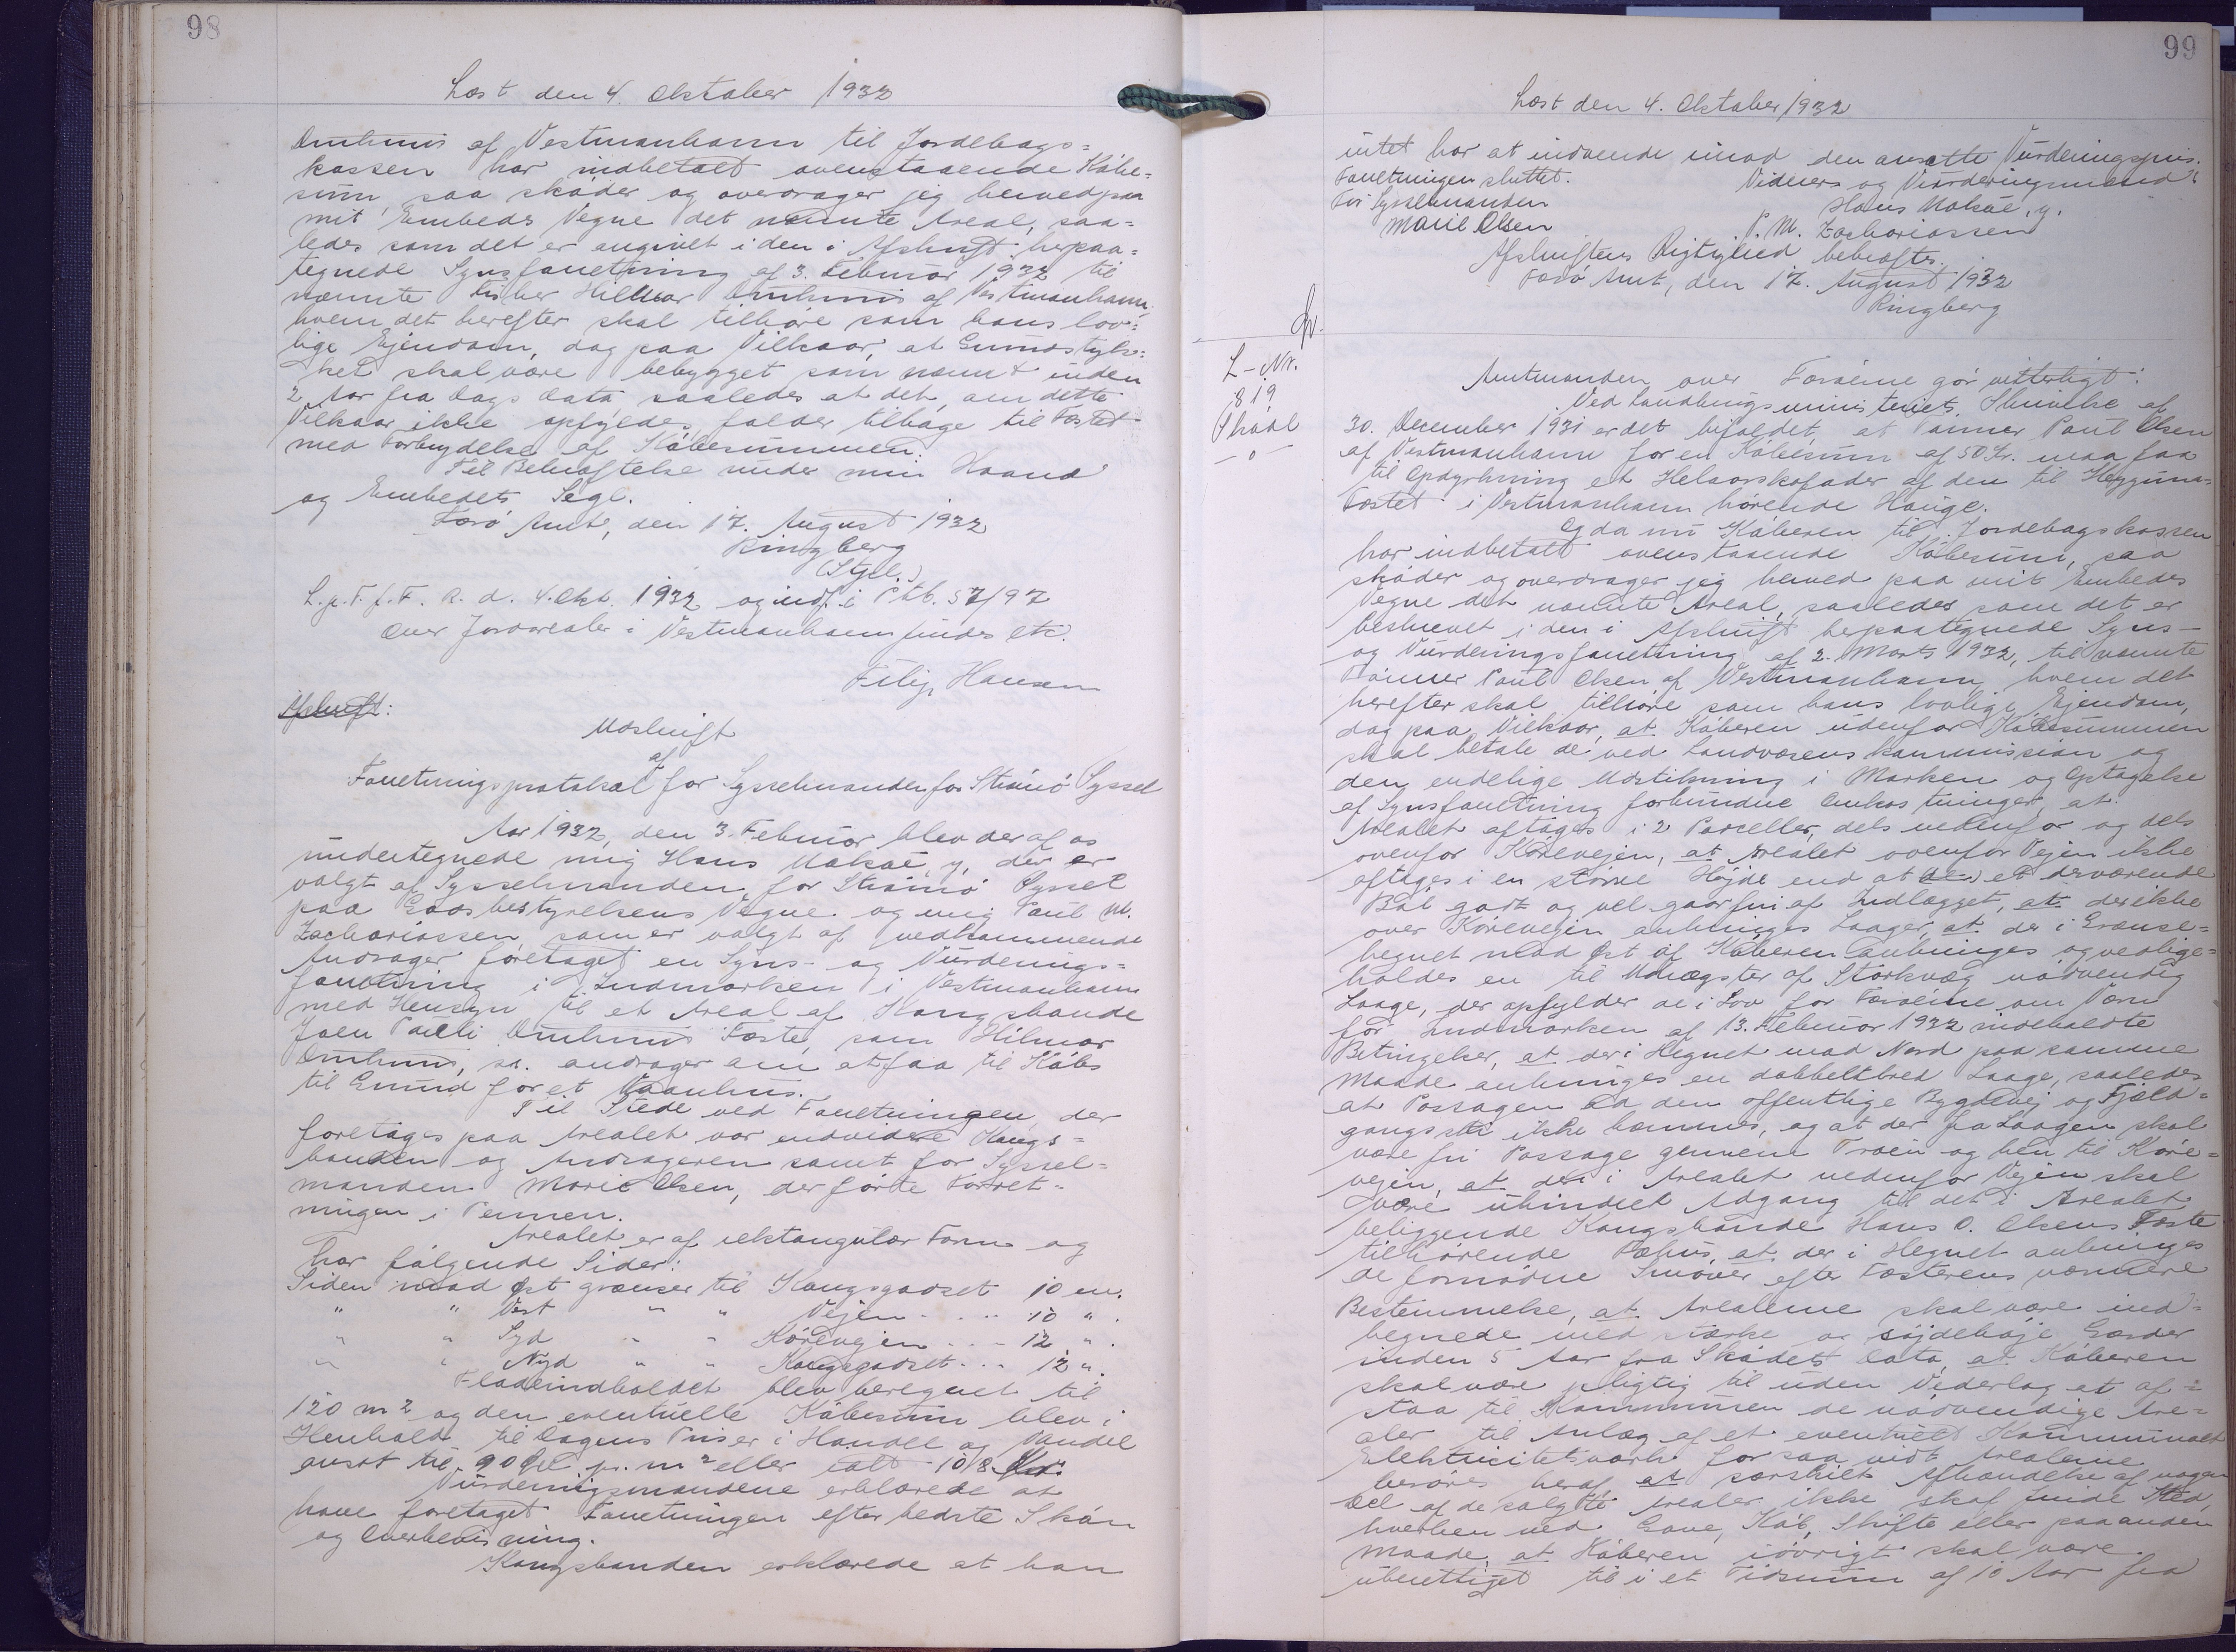 98
Læst den 4. Oktober 1932
af Vestmanhavn til Jordebogs=
kassen har indbetalt ovenstaaende Købe=
sum, saa skøder og overdrager jeg herved paa
mit Embeds Vegne det nævnte Areal, saa=
ledes som det er angivet i den i Afskrift herpaa=
tegnede Synsforretning af 3. Februar 1932 til
nævnte Fisker Hilmar af Vestmanhavn,
hvem det herefter skal tilhøre som hans lov=
lige Ejendom, dog paa Vilkaar, at Grundstyk=
ket skal være bebygget som nævnt inden
2 Aar fra Dags Dato saaledes at det, om dette
Vilkaar ikke opfyldes, falder tilbage til Fæstet
med Fortrydelse af Købesummen.
Til Bekræftelse under min Haand
og Embedets Segl.
Færø Amt, den 17. August 1932
Ringberg
(Segl.)
L. p. T. f. F. R. d. 4. Okt. 1932 og indf. i Ptb. 57/97
Over Jordarealer i Vestmanhavn findes etc.
Filip Hansen
Afskrift:
Udskrift
af
Forretningsprotokol for Sysselmanden for Strømø Syssel
Aar 1932, den 3. Februar blev der af os
undertegnede mig Hans y, der er
valgt af Sysselmanden for Strømø Syssel
paa Godsbestyrelsens Vegne og mig Paul M.
Zachariassen, som er valgt af vedkommende
Andrager foretaget en Syns- og Vurderings=
forretning i Indmarken i Vestmanhavn
med Hensyn til et Areal af Kongsbonde
Joen Pauli Fæste, som Hilmar
andrager om at faa til Købs
til Grund for et Vaanhus.
Til Stede ved Forretningen, der
foretages paa Arealet var endvidere Kongs=
bonden og Andrageren samt for Syssel=
manden Marie Olsen, der førte Forret=
ningen i Pennen.
Arealet er af rektangulær Form og
har følgende Sider:
Siden mod Øst grænser til Kongsgodset 10 m.
" " Vest " " Vejen . . . . 10 " .
" " Syd " " Kørevejen . . - 12 " .
" " Nrd " " Kongsgodset . . . 12 " .
Fladeindholdet blev beregnet til
120 m2 og den eventuelle Købesum blev i
Henhold til Dagens Priser i Handel og Vandel
ansat til 90 Øre pr. m2 eller ialt 108 Kr.
Vurderingsmændene erklærede at
have foretaget Forretningen efter bedste Skøn
og Overbevisning.
Kongsbonden erklærede at han
99
Læst den 4. Oktober 1932
intet har at indvende imod den ansatte Vurderingspris.
Forretningen sluttet. Vidner og Vurderingsmænd:
For Sysselmanden Hans y.
Marie Olsen P. M. Zachariassen
Afskriftens Rigtighed bekræftes.
Færø Amt, den 17. August 1932
Ringberg
L-Nr.
819
Skøde
- o -
Amtmanden over Færøerne gør vitterligt:
Ved Landbrugsministeriets Skrivelse af
30. December 1931 er det bifaldet, at Tømrer Poul Olsen
af Vestmanhavn for en Købesum af 50 Kr. maa faa
til Opdyrkning et Helaarskofoder af den til Heyguna=
Fæstet i Vestmanhavn hørende Hauge.
Og da nu Køberen til Jordebogskassen
har indbetalt ovenstaaende Købesum, saa
skøder og overdrager jeg herved paa mit Embedes
Vegne det nævnte Areal, saaledes som det er
beskrevet i den i Afskrift herpaategnede Syns-
og Vurderingsforretning af 2. Marts 1932, til nævnte
Tømrer Poul Olsen af Vestmanhavn, hvem det
herefter skal tilhøre som hans lovlige Ejendom,
dog paa Vilkaar, at Køberen udenfor Købesummen
skal betale de ved Landvæsenskommission og
den endelige Udstikning i Marken og Optagelse
af Synsforretning forbundne Omkostninger, at
Arealet aftages i 2 Parceller, dels nedenfor og dels
ovenfor Kørevejen, at Arealet ovenfor Vejen ikke
aftages i en større Højde end at et derværende
Bøl godt og vel gaar fri af Indlægget, at der ikke
over Kørevejen anbringes Laager, at der i Grænse=
hegnet mod Øst af Køberen anbringes og vedlige=
holdes en til Uddrægster af Storkvæg nødvendig
Laage, der opfylder de i Lov for Færøerne om Værn
for Indmarken af 13. Februar 1932 indeholdte
Betingelser, at der i Hegnet mod Nord paa samme
Maade anbringes en dobbeltbred Laage, saaledes
at Passagen ad den offentlige Bygdevej og Fjeld=
gangssti ikke hæmmes, og at der fra Laagen skal
være fri Passage gennem Trøen og hen til Køre=
vejen, at der i Arealet nedenfor Vejen skal
være uhindret Adgang til det i Arealet
beliggende Kongsbonde Hans O. Olsens Fæste
tilhørende Fæhus, at der i Hegnet anbringes
de fornødne Smører efter Fæsterens nærmere
Bestemmelse, at Arealerne skal være ind=
hegnede med stærke og søjdehøje Gærder
inden 5 Aar fra Skødets Dato, at Køberen
skal være pligtig til uden Vederlag at af=
staa til Kommunen de nødvendige Are=
aler til Anlæg af et eventuelt Kommunalt
Elektricitetsværk forsaavidt Arealerne
berøres heraf, at særskilt Afhændelse af nogen
Del af de solgte Arealer ikke skal finde Sted,
hverken ved Gave, Køb, Skifte eller paa anden
Maade, at Køberen iøvrigt skal være
uberettiget til i et Tidsrum af 10 Aar fra